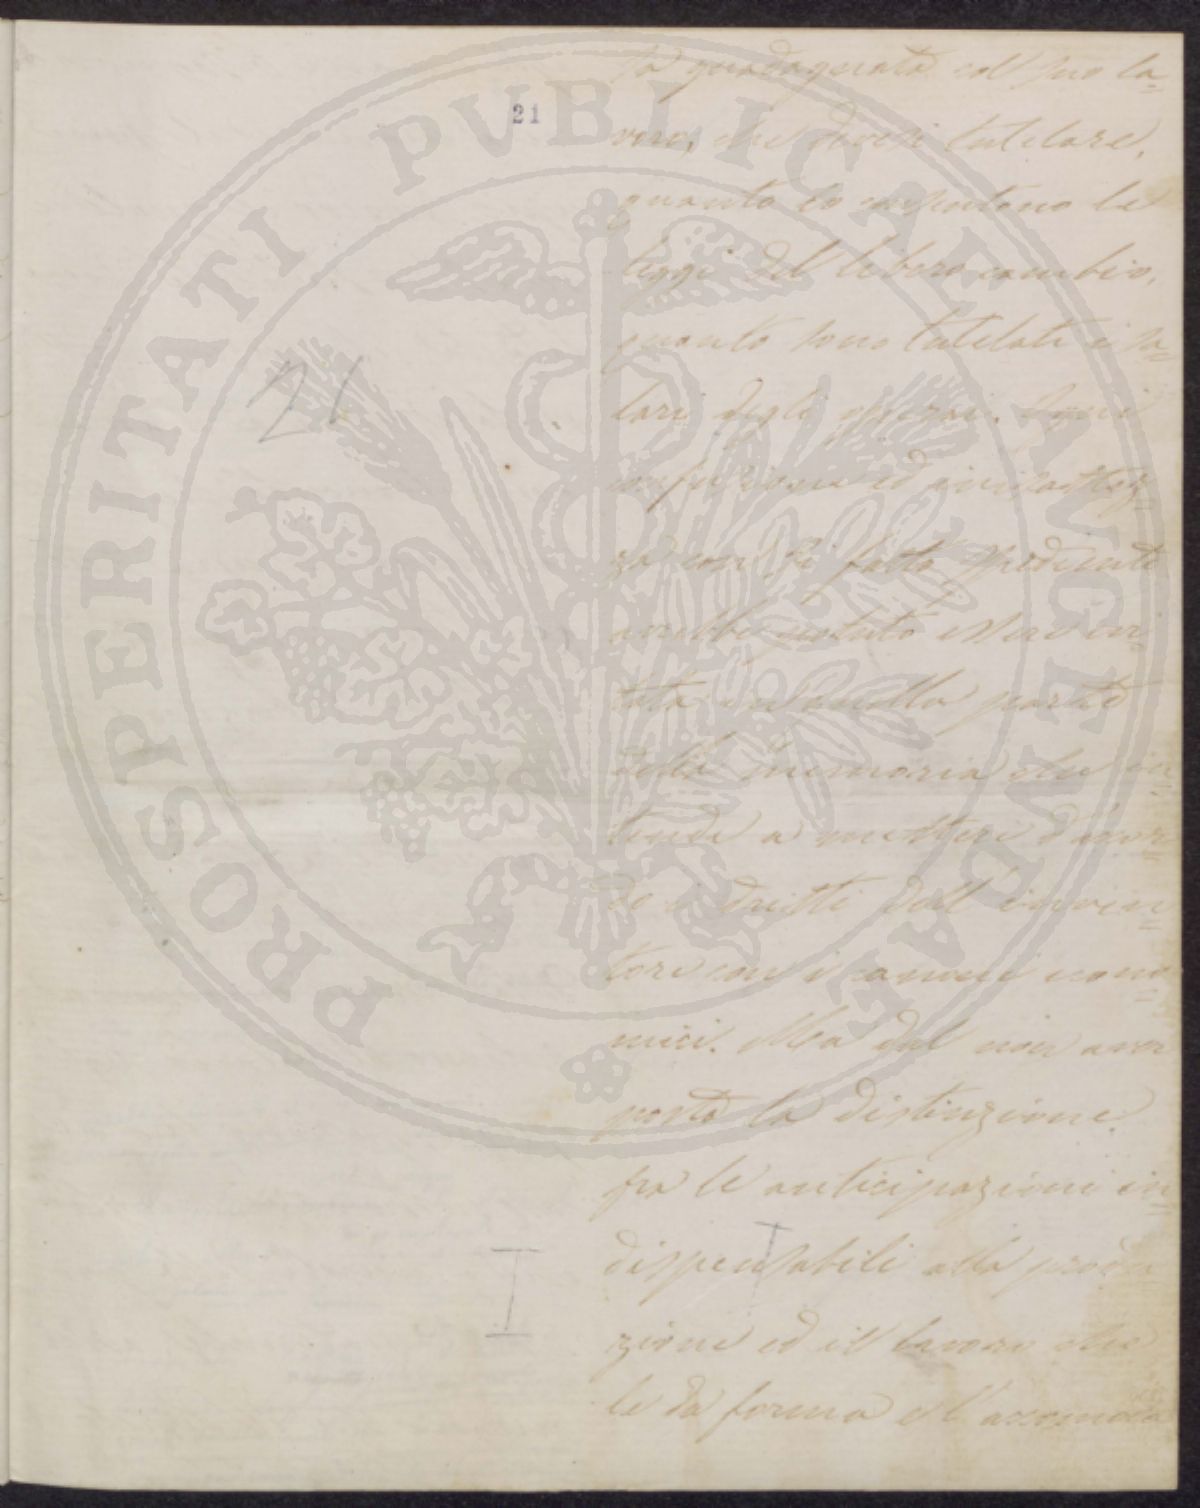 21
PROSPERITATI PVBLICAE AVGENDAE
21
ta guadagnata col suo la=
voro, che devesi tutelare,
quanto lo comportano le
leggi del libero cambio,
quanto sono tutelati i sa=
lari degli operai. Ogni
confusione ed inesattez=
za con sì fatto espediente
avrebbe potuto essere evi
tata in quella parte
della memoria che in
tende a mettere d'accor=
do i dritti dell'inven=
tore con i canoni econo=
mici. Ma dal non aver
posto la distinzione
fra le anticipazioni in=
dispensabili alla produ
zione ed il lavoro che
le dà forma e l'accomoda
I